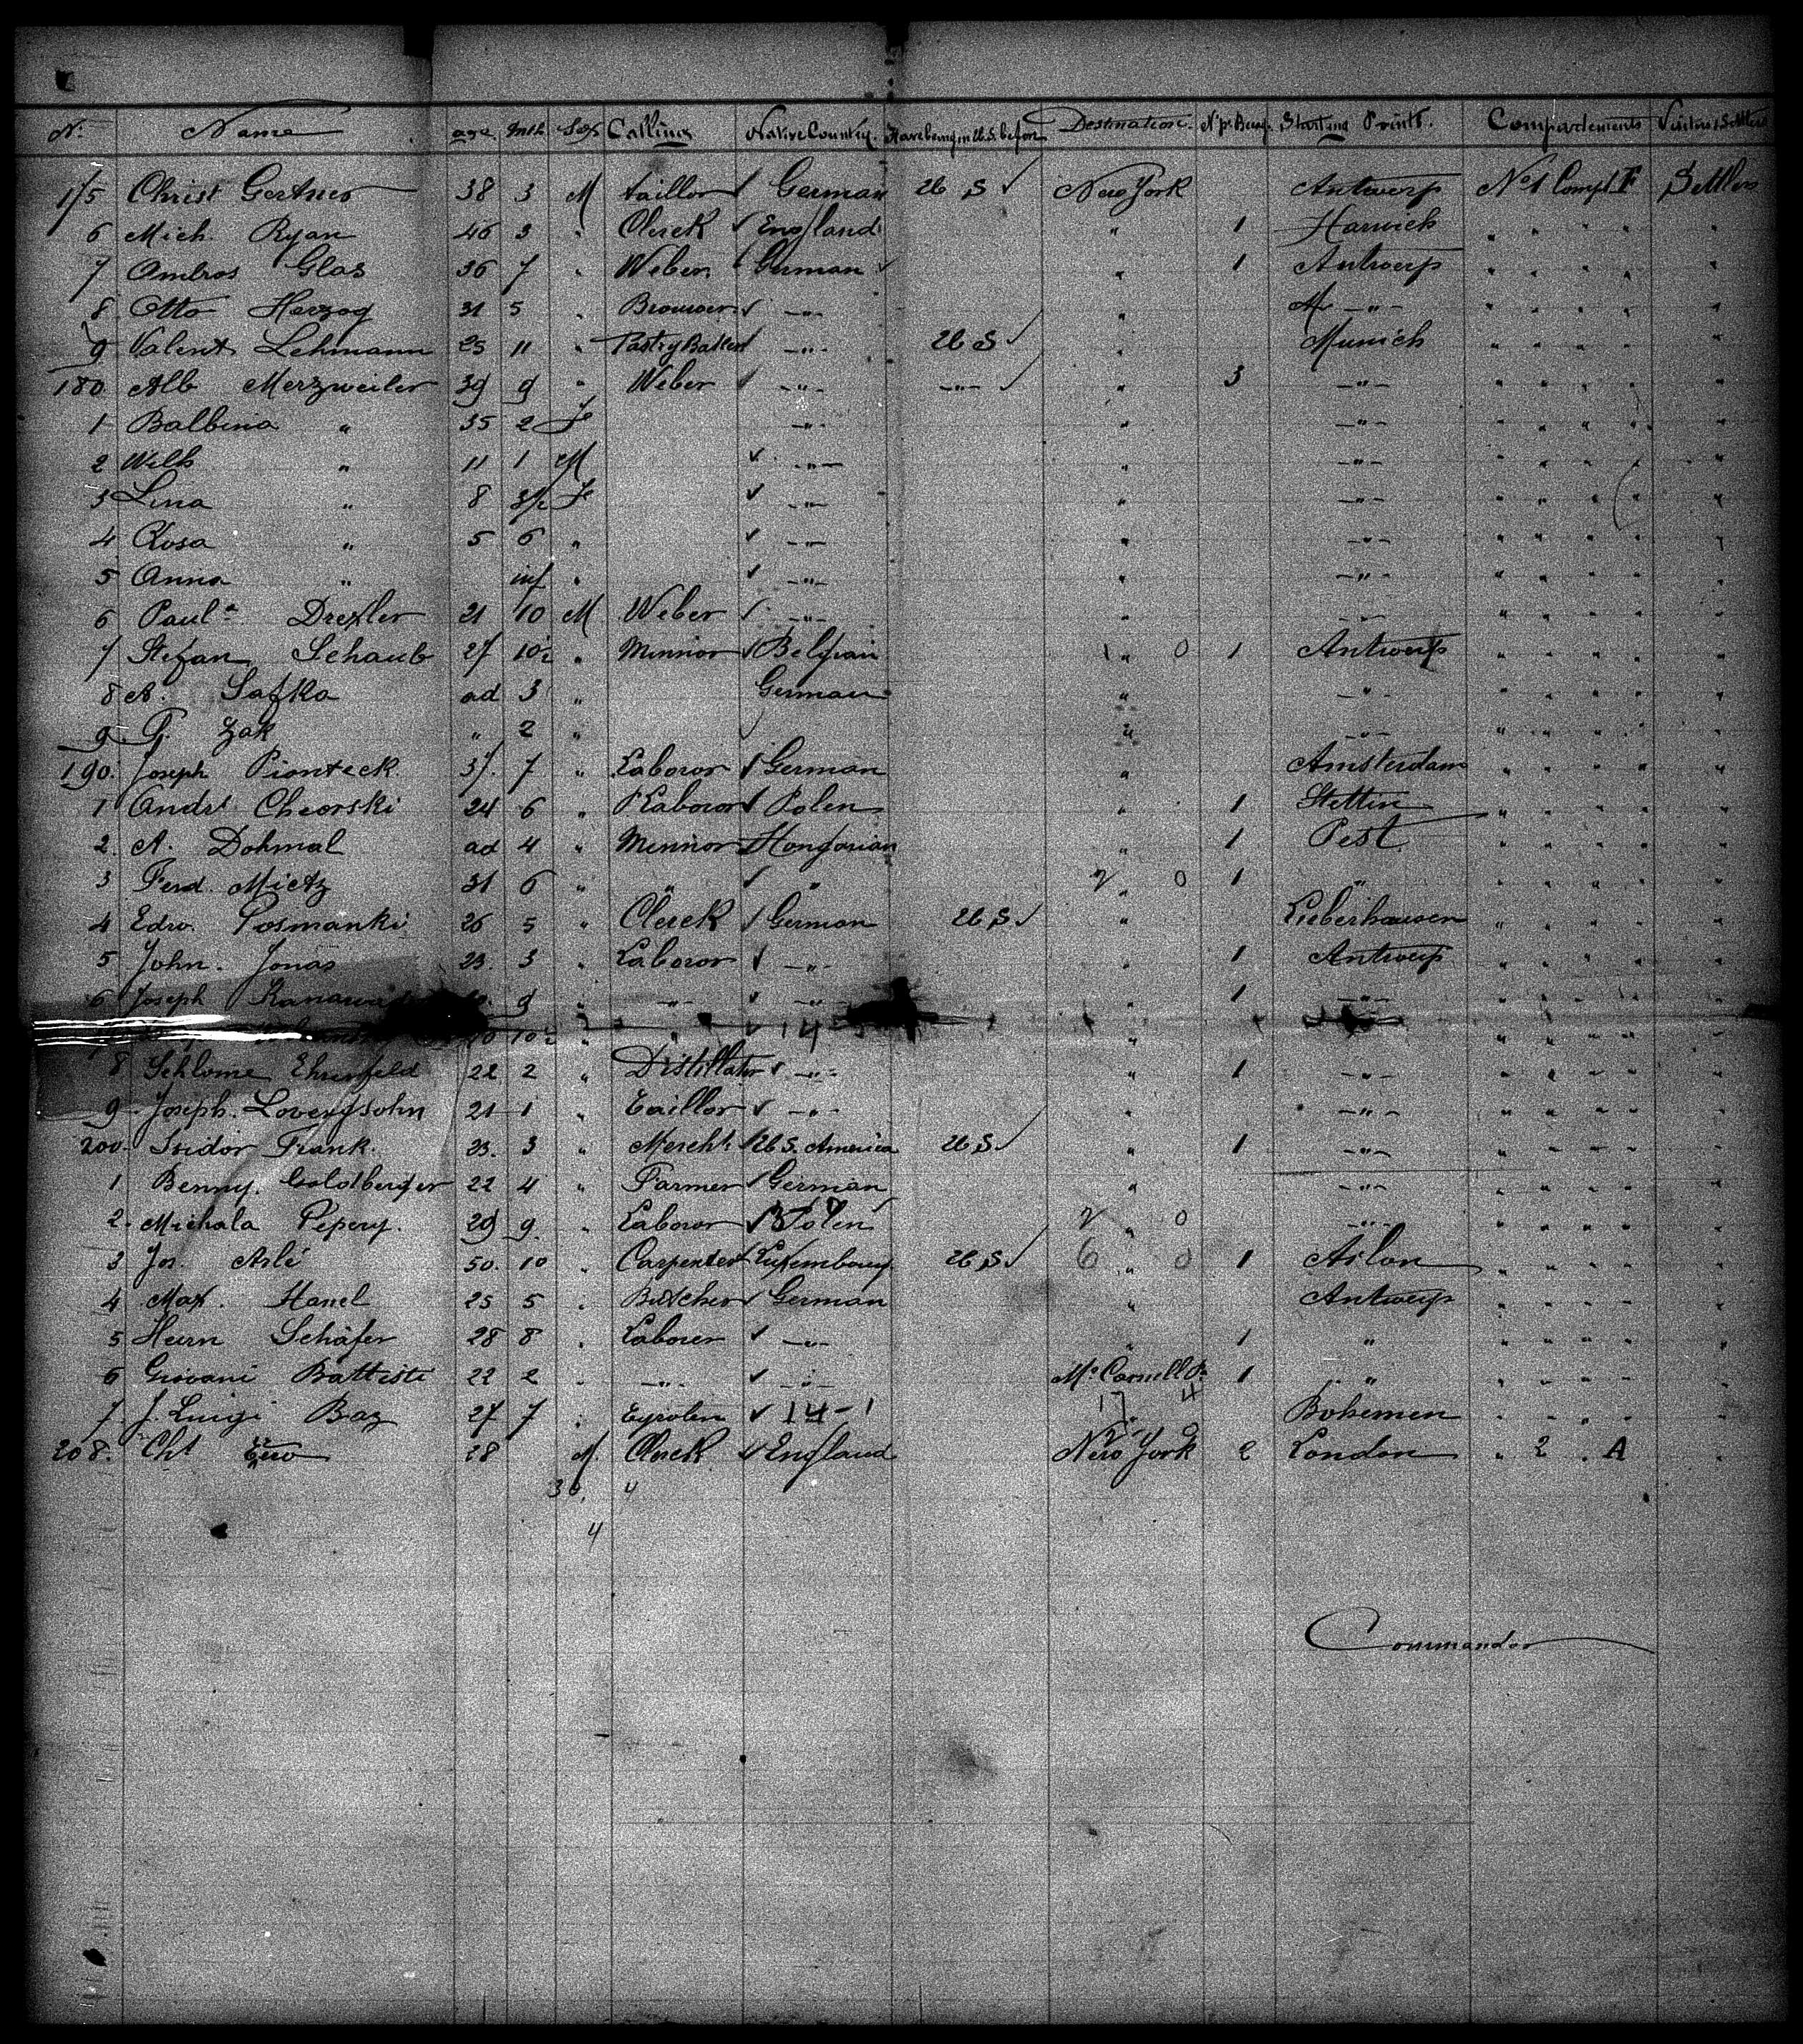 No. Name age Mth Sex Calling Native Country. Have being in U.S. before Destination. No pr Bagg. Starting Points. Compartements Visitors & Settlers
175 Christ Gertner 38 3 M taillor ✓ German U S ✓ New York Antwerp No 1 Compt. F Settlers
6 Mich. Ryan 46 3 " Clerck ✓ England " 1 Harwich " " " " "
7 Ambros Glas 36 7 " Weber ✓ German ✓ " 1 Antwerp " " " " "
8 Otto Herzog 31 5 " Brouwer ✓ —"— " —"— " " " " "
9 Valent Lehmann 25 11 " Pastry Baker ✓ —"— U S ✓ " Munich " " " " "
180 Alb Merzweiler 39 9 " Weber ✓ —"— —"— ✓ " 3 —"— " " " " "
1 Balbina " 35 2 Fe —"— " —"— " " " " "
2 Wilh " 11 1 M ✓ —"— " —"— " " " " "
3 Lina " 8 3½ Fe ✓ —"— " —"— " " " " "
4 Rosa " 5 6 " ✓ —"— " —"— " " " " "
5 Anna " inf " ✓ —"— " —"— " " " " "
6 Paul Drexler 21 10 M Weber ✓ —"— " —"— " " " " "
7 Stefan Schaub 27 10½ " Minnor ✓ Belgian 1 " 0 1 Antwerp " " " " "
8 A. Safka ad 3 " German " —"— " " " " "
9 P. Zak " 2 " ✓ " —"— " " " " "
190. Joseph Pionteck. 37. 7 " Laboror ✓ German " Amsterdam " " " " "
1 Andr Cheorski 24 6 " Laboror ✓ Polen " 1 Stettin " " " " "
2. A. Dohmal ad 4 " Minnor Hongarian " 1 Pest " " " " "
3 Ferd. Mietz 31 6 " " ✓ " 2 " 0 1 " " " " " "
4 Edw. Posmanki 26 5 " Clerck ✓ German U S. ✓ " Lieberhausen " " " " "
5 John. Jonas 23. 3 " Laboror ✓ —"— " 1 Antwerp " " " " "
6 Joseph 9 " —"— ✓ —"— " 1 —"— " " " " "
10½ " " ✓ 14 " " " " " "
8 Schlome Ehrenfeld 22 2 " Distillator ✓ —"— " 1 —"— " " " " "
9 Joseph. Lovengsohn 21 1 " Taillor ✓ —"— " —"— " " " " "
200. Isidor Frank. 23. 3 " Mercht. ✓ U. S. America U S ✓ " 1 —"— " " " " "
1 Benny. Goldberger 22 4 " Farmer ✓ German " —"— " " " " "
2. Michala Pepery. 29 9. " Laboror ✓ Polen 2 " 0 —"— " " " " "
3 Jos. Arlé 50. 10 " Carpenter ✓ Luxembourg U S. ✓ 6 " 0 1 Arlon " " " " "
4 Max. Hanel 25 5 " Butcher ✓ German " Antwerp " " " " "
5 Herrn Schäfer 28 8 " Laborer ✓ —"— " 1 " " " " " "
6 Giovani Battisti 22 2 " —"— ✓ —"— Mc Connell Pa 1 " " " " " "
7. J. Luigi Baz 27 7 " Tyrolen ✓ 14 - 1 17 4 Bohemen " " " " "
208. Cht 28 M. Clerck ✓ England New York 2 London " 2 " A "
36. 4
4
Commander